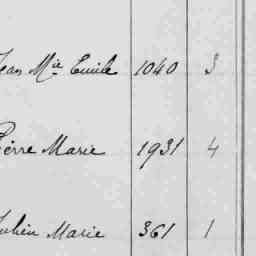 Jean Mie Emile 1040 3
Pierre Marie 1931 4
Julien Marie 361 1